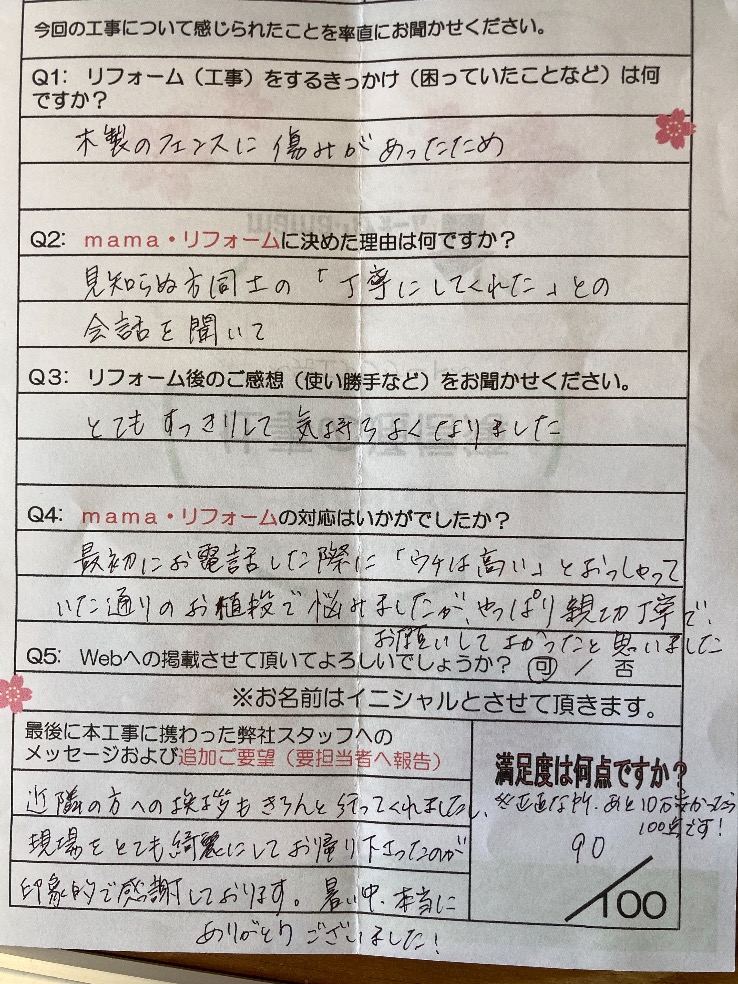 今回の工事について感じられたことを率直にお聞かせください。
Q1: リフォーム（工事）をするきっかけ（困っていたことなど）は何
ですか？
木製のフェンスに傷みがあったため
Q2: mama・リフォームに決めた理由は何ですか？
見知らぬ方同士の「丁寧にしてくれた」との
会話を聞いて
Q3: リフォーム後のご感想（使い勝手など）をお聞かせください。
とてもすっきりして気持ちよくなりました
Q4: mama・リフォームの対応はいかがでしたか？
最初にお電話した際に「ウチは高い」とおっしゃって
いた通りのお値段で悩みましたが、やっぱり親切丁寧で、
お願いしてよかったと思いました
Q5: Webへの掲載させて頂いてよろしいでしょうか？ 可 ／ 否
※お名前はイニシャルとさせて頂きます。
最後に本工事に携わった弊社スタッフへの
メッセージおよび追加ご要望（要担当者へ報告）
近隣の方への挨拶もきちんと行ってくれましたし、
現場をとても綺麗にしてお帰り下さったのが
印象的で感謝しております。暑い中、本当に
ありがとうございました！
満足度は何点ですか？
※正直な所、あと10万安かったら
100点です！
90
/100